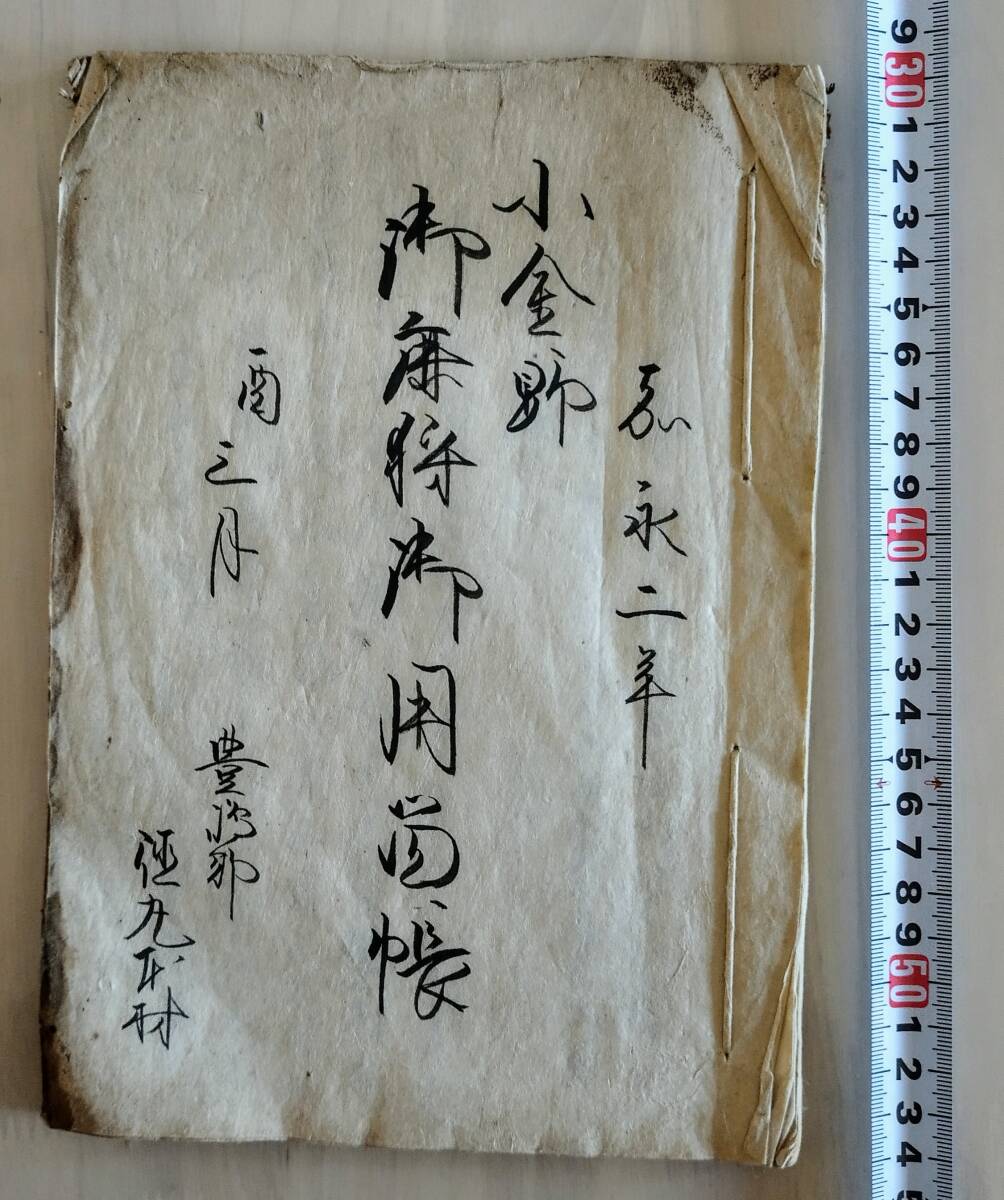 嘉永二年
小金野
御鹿狩御用留帳
酉三月
豊嶋郡
徳丸本村
9 30 1 2 3 4 5 6 7 8 9 40 1 2 3 4 5 6 7 8 9 50 1 2 3 4